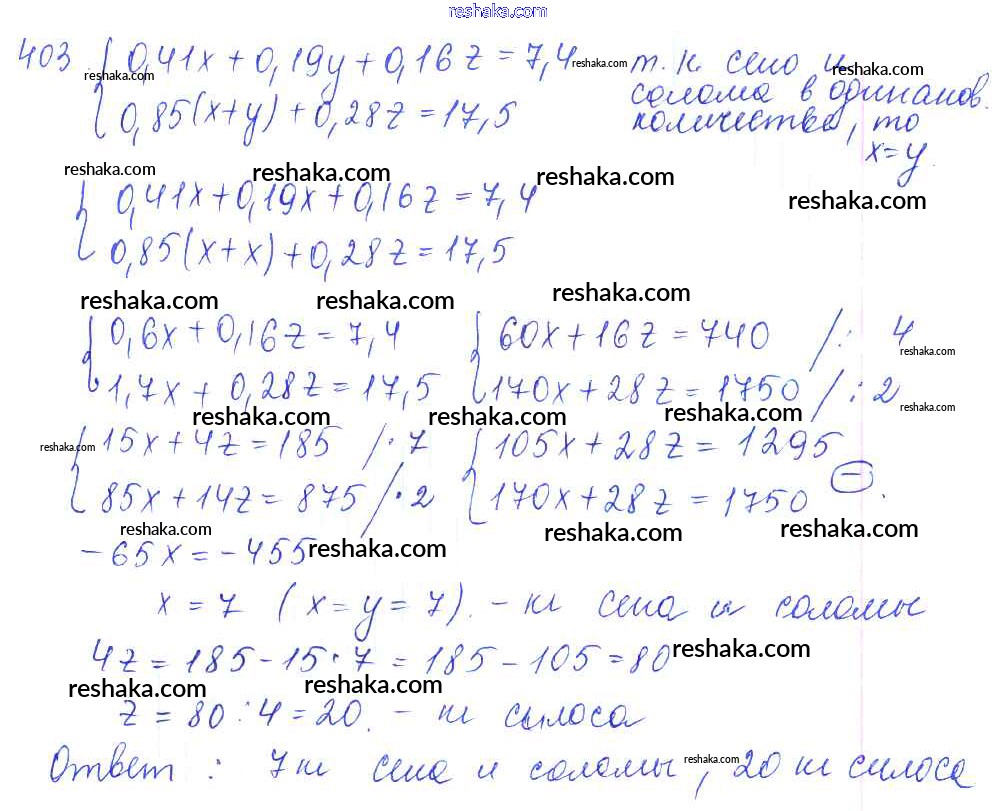 reshaka.com
403. { 0,41x + 0,19y + 0,16z = 7,4 reshaka.com т.к. сено и reshaka.com
reshaka.com
0,85(x+y) + 0,28z = 17,5 солома в одинаков.
количестве, то
x=y.
reshaka.com reshaka.com reshaka.com reshaka.com
{ 0,41x+0,19x+0,16z = 7,4
0,85(x+x)+0,28z = 17,5
reshaka.com reshaka.com reshaka.com
{ 0,6x+0,16z = 7,4 { 60x+16z = 740 /: 4
reshaka.com
1,7x + 0,28z = 17,5 170x+28z = 1750 /: 2
reshaka.com reshaka.com reshaka.com reshaka.com
reshaka.com { 15x+4z = 185 /·7 { 105x+28z = 1295
85x+14z = 875 /·2 170x+28z = 1750 (−).
reshaka.com reshaka.com reshaka.com
-65x = -455 reshaka.com
x = 7 (x=y=7). - кг сена и соломы
4z = 185-15·7 = 185-105 = 80 reshaka.com
reshaka.com reshaka.com
z = 80:4 = 20. - кг силоса
Ответ: 7 кг сена и соломы, reshaka.com 20 кг силоса